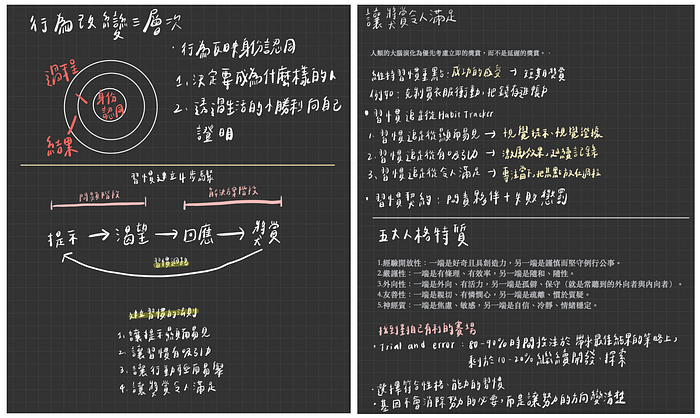 行為改變三層次
過程
身份
認同
結果
・行為 身份認同
1. 決定要成為什麼樣的人
2. 透過生活的小勝利向自己
證明
習慣建立4步驟
問題階段
解決方案階段
提示 → 渴望 → 回應 → 獎賞
習慣迴路
建立習慣的法則
1. 讓提示顯而易見
2. 讓習慣有吸引力
3. 讓行動輕而易舉
4. 讓獎賞令人滿足
讓獎賞令人滿足
人類的大腦演化為優先考慮立即的獎賞，而不是延遲的獎賞。.
維持習慣重點：成功的感受 → 短期獎賞
例如：克制買衣服衝動，把錢存進帳戶
• 習慣追蹤從 Habit Tracker
1. 習慣追蹤從顯而易見 → 視覺提示、視覺證據
2. 習慣追蹤從有吸引力 → 激勵效果，延續記錄
3. 習慣追蹤從令人滿足 → 專注當下，把焦點放在過程
• 習慣契約：問責夥伴＋失敗懲罰
五大人格特質
1.經驗開放性：一端是好奇且具創造力，另一端是謹慎而堅守例行公事。
2.嚴謹性：一端是有條理、有效率，另一端是隨和、隨性。
3.外向性：一端是外向、有活力，另一端是孤僻、保守（就是常聽到的外向者與內向者）。
4.友善性：一端是親切、有憐憫心，另一端是疏離、慣於質疑。
5.神經質：一端是焦慮、敏感，另一端是自信、冷靜、情緒穩定。
找到對自己有利的賽場
• Trial and error：80-90%時間投注於帶來最佳結果的策略上，
剩於10-20%繼續開發、探索
• 選擇符合性格、能力的習慣
• 基因不會消除努力的必要，而是讓努力的方向變清楚